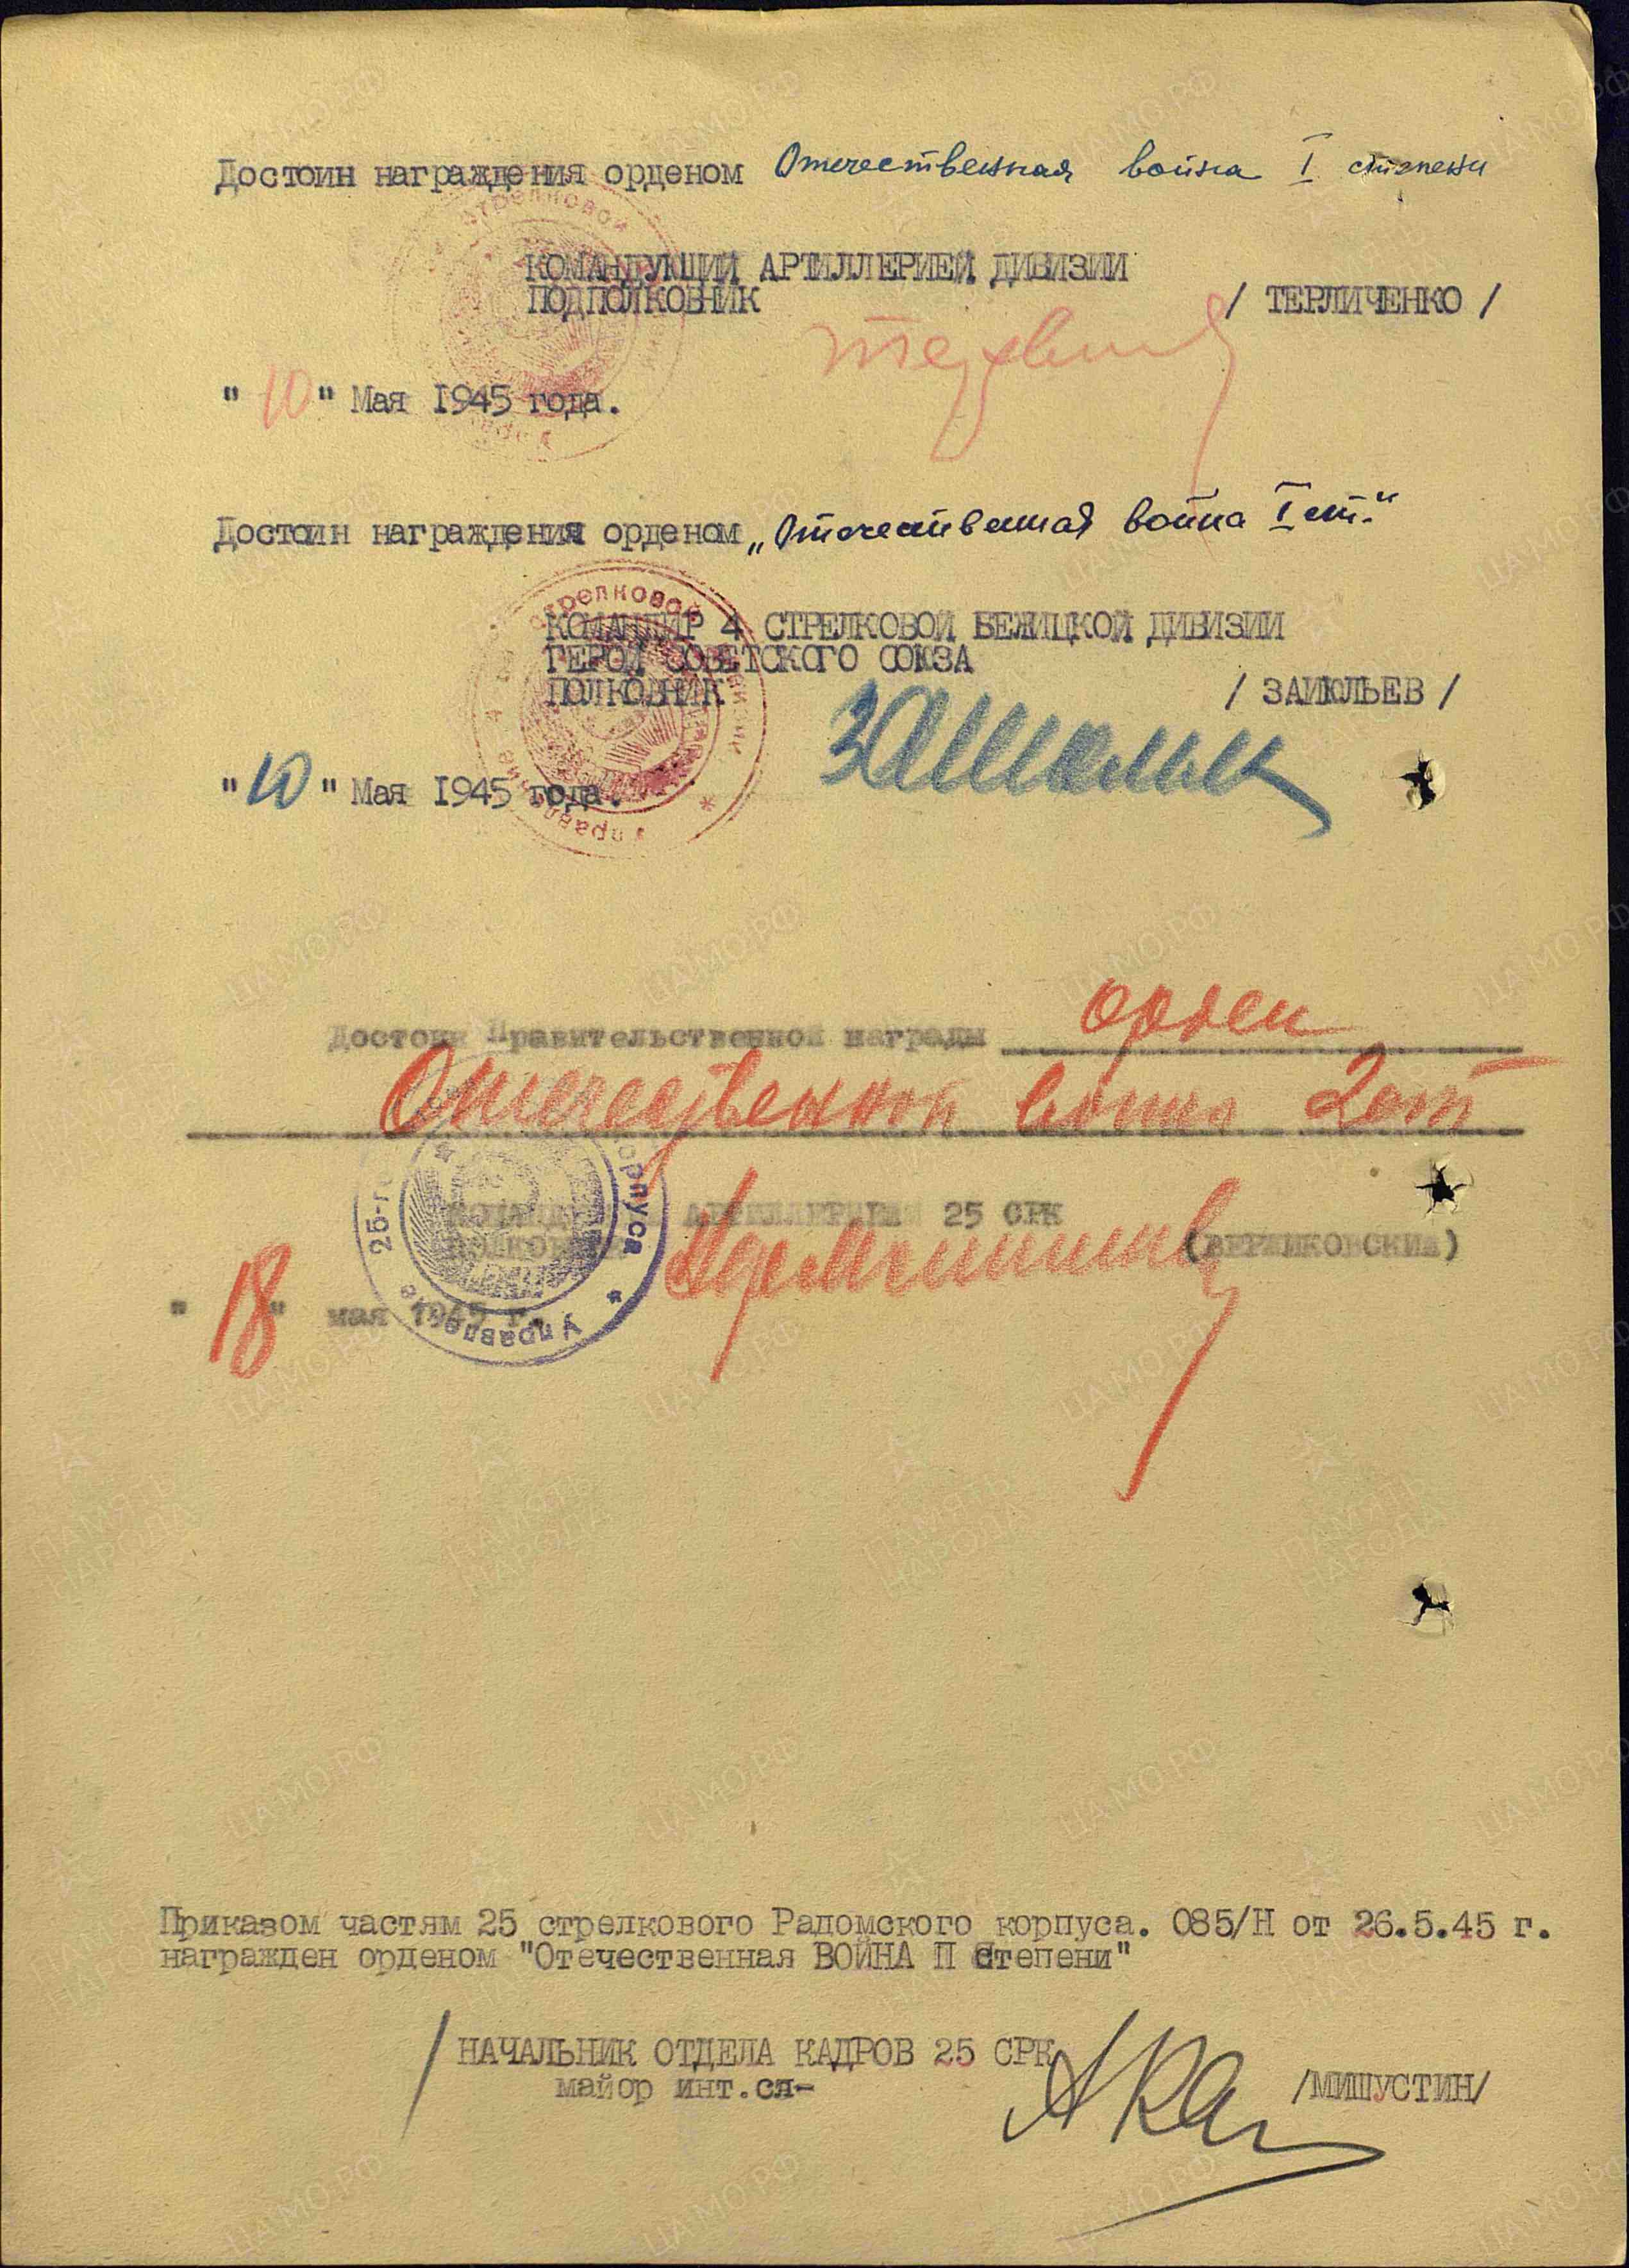 Достоин награждения орденом Отечественная война I степени
КОМАНДУЮЩИЙ АРТИЛЛЕРИЕЙ ДИВИЗИИ
ПОДПОЛКОВНИК / ТЕРЛИЧЕНКО /
"10" Мая 1945 года.
Достоин награждения орденом „Отечественная война I ст."
КОМАНДИР 4 СТРЕЛКОВОЙ БЕЖИЦКОЙ ДИВИЗИИ
ГЕРОЙ СОВЕТСКОГО СОЮЗА
ПОЛКОВНИК / ЗАИЮЛЬЕВ /
"10" Мая 1945 года.
Достоин Правительственной награды орден
Отечественной войны 2 ст
КОМАНДУЮЩИЙ АРТИЛЛЕРИЕЙ 25 СРК
ПОЛКОВНИК
"18" мая 1945 г.
Приказом частям 25 стрелкового Радомского корпуса. 085/Н от 26.5.45 г.
награжден орденом "Отечественная ВОЙНА П Степени"
/ НАЧАЛЬНИК ОТДЕЛА КАДРОВ 25 СРК
майор инт.сл- /МИШУСТИН/